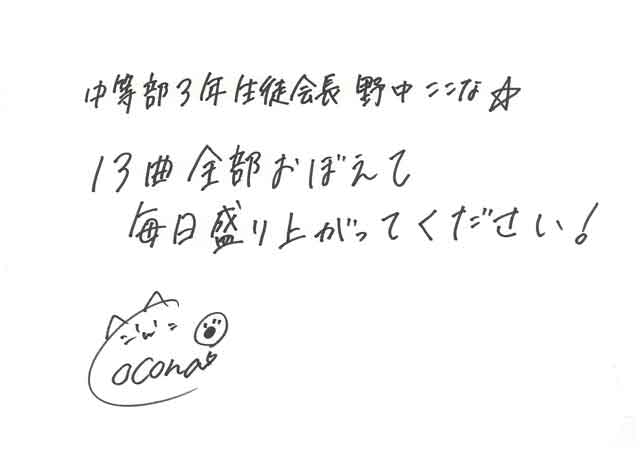 中等部3年生徒会長 野中ここな☆
13曲全部おぼえて
毎日盛り上がってください!
Cocona